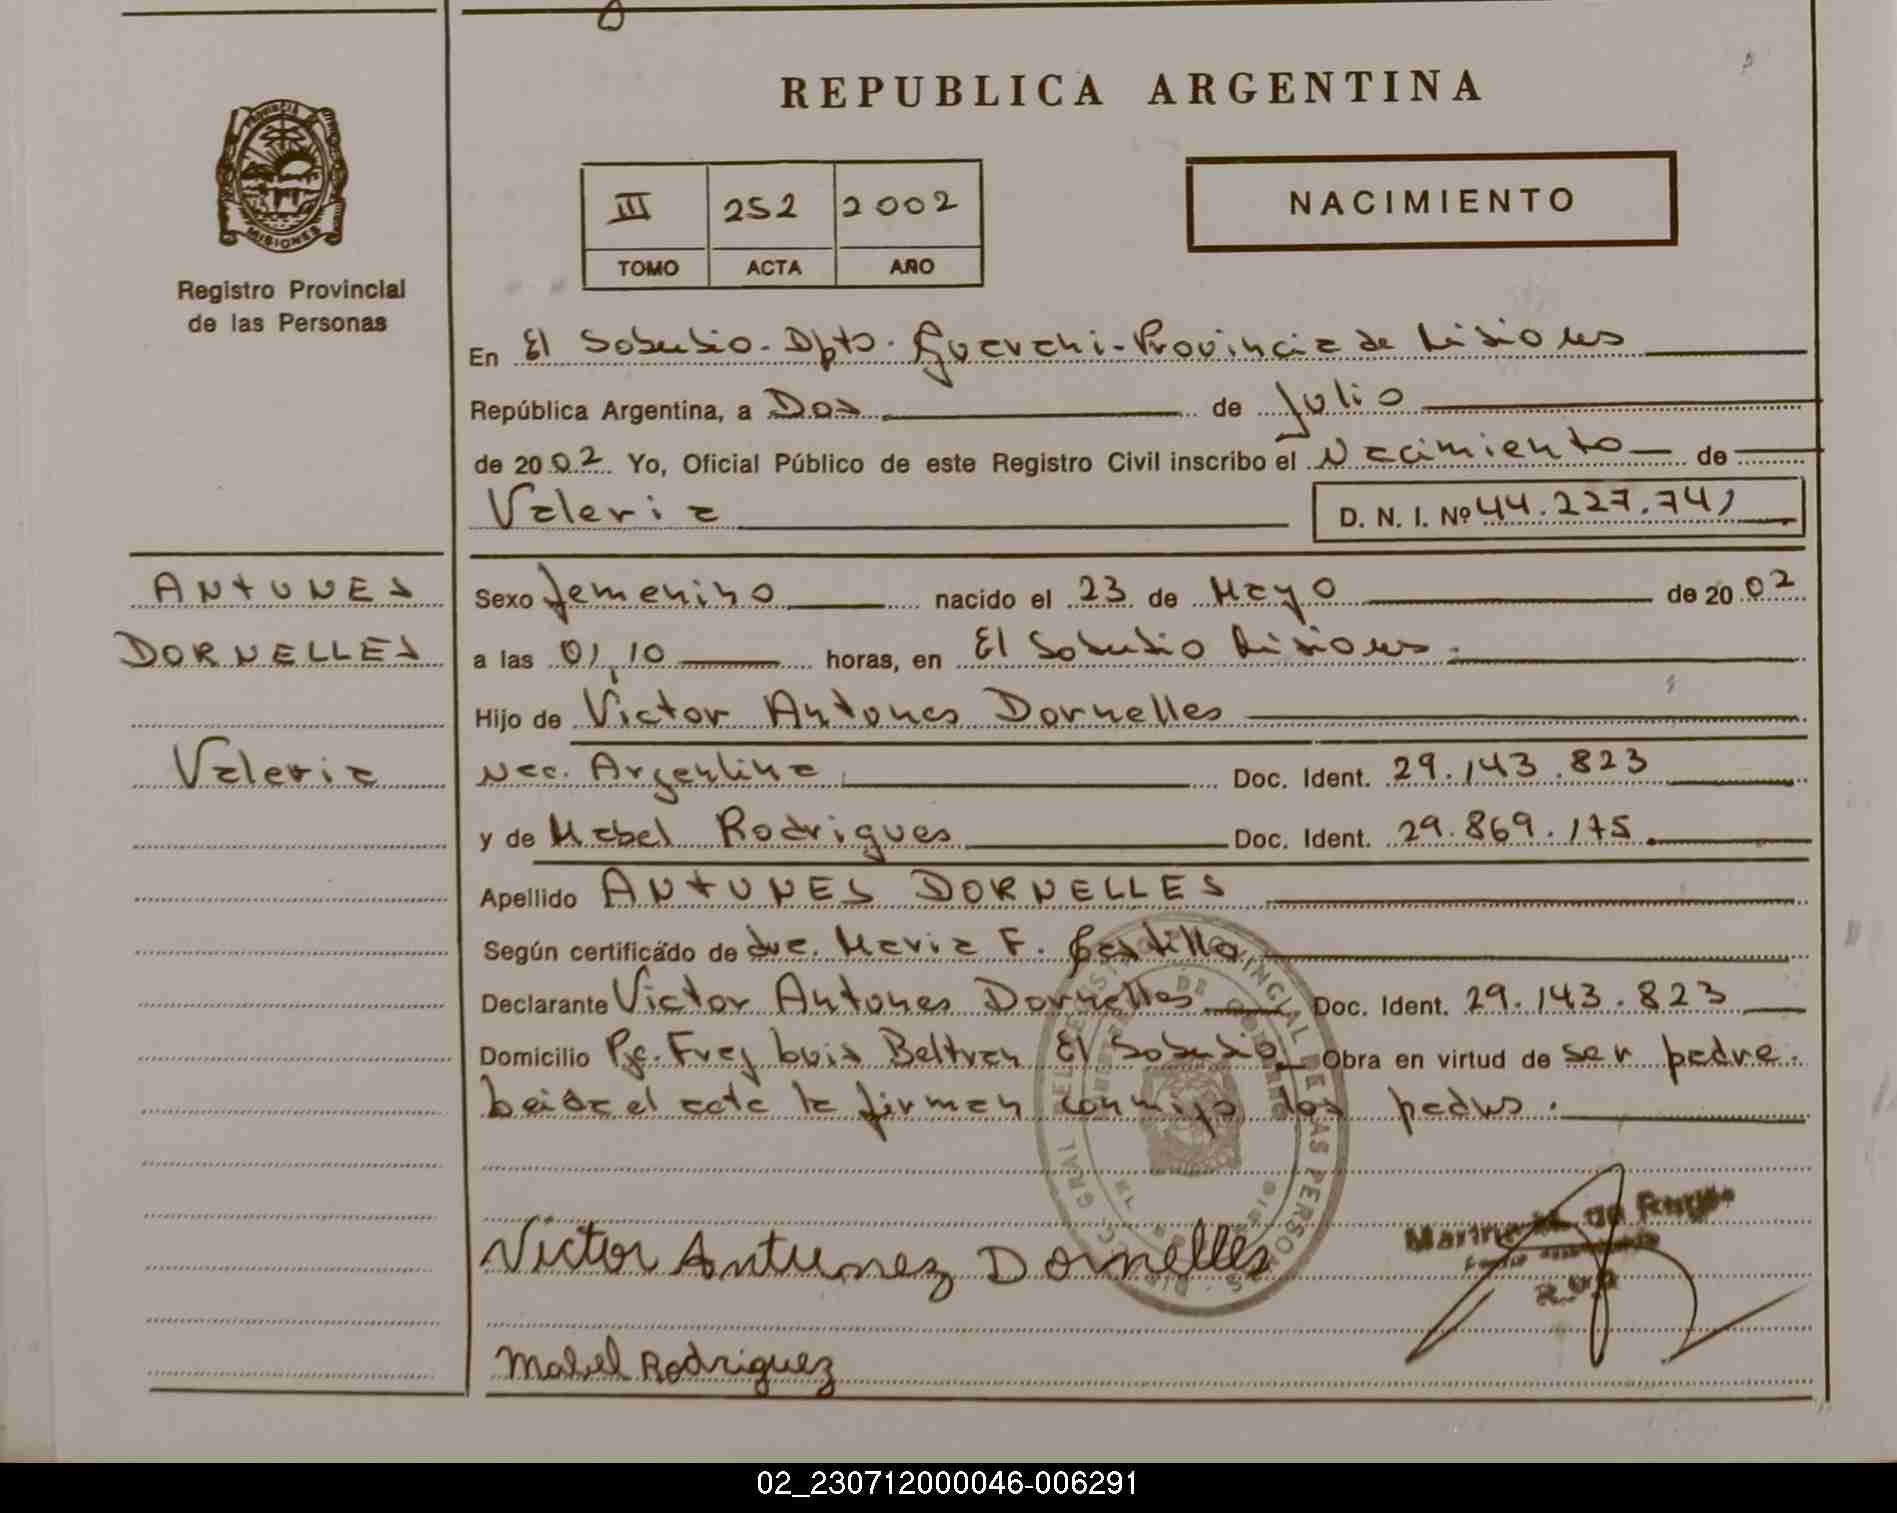 REPUBLICA ARGENTINA
PROVINCIA DE
MISIONES
Registro Provincial
de las Personas
III 252 2002
TOMO ACTA AÑO
NACIMIENTO
En El Soberbio - Dpto. Guarani - Provincia de Misiones
República Argentina, a Dos de Julio
de 2002 Yo, Oficial Público de este Registro Civil inscribo el Nacimiento de
Valeria D. N. I. Nº 44.227.741
ANTUNES
DORNELLES
Valeria
Sexo femenino nacido el 23 de Mayo de 2002
a las 01,10 horas, en El Soberbio Misiones.
Hijo de Victor Antunes Dornelles
Nac. Argentina Doc. Ident. 29.143.823
y de Mabel Rodrigues Doc. Ident. 29.869.175
Apellido ANTUNES DORNELLES
Según certificado de dra. Maria F. Castillo
Declarante Victor Antunes Dornelles Doc. Ident. 29.143.823
Domicilio Pje. Fray Luis Beltran El Soberbio Obra en virtud de ser padre.
Leida el acta la firman conmigo los padres.
Victor Antunez Dornelles
Mabel Rodriguez
02_230712000046-006291